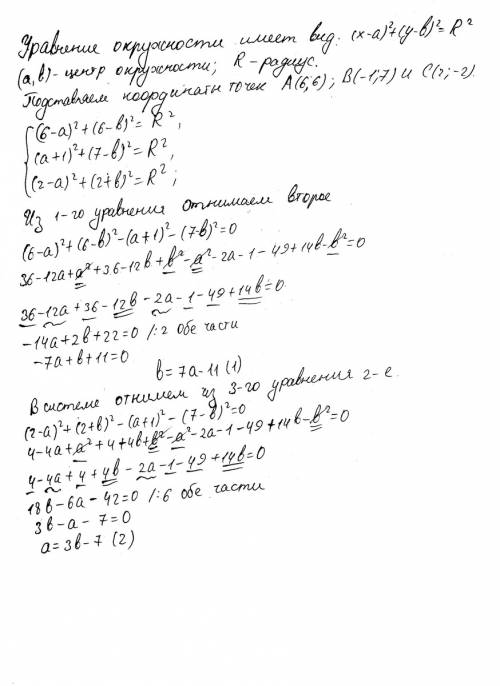 Уравнение окружности имеет вид: (x-a)²+(y-в)²=R²
(a,в)-центр окружности; R-радиус.
Подставляем координаты точек A(6;6); B(-1;7) и C(2;-2).
(6-a)²+(6-в)²=R²,
(a+1)²+(7-в)²=R²,
(2-a)²+(2+в)²=R²;
Из 1-го уравнения отнимаем второе
(6-a)²+(6-в)²-(a+1)²-(7-в)²=0
36-12a+a²+36-12в+в²-a²-2a-1-49+14в-в²=0
36-12a+36-12в-2a-1-49+14в=0
-14a+2в+22=0 /:2 обе части
-7a+в+11=0
в=7a-11 (1)
В системе отнимем из 3-го уравнения 2-е.
(2-a)²+(2+в)²-(a+1)²-(7-в)²=0
4-4a+a²+4+4в+в²-a²-2a-1-49+14в-в²=0
4-4a+4+4в-2a-1-49+14в=0
18в-6a-42=0 /:6 обе части
3в-a-7=0
a=3в-7 (2)